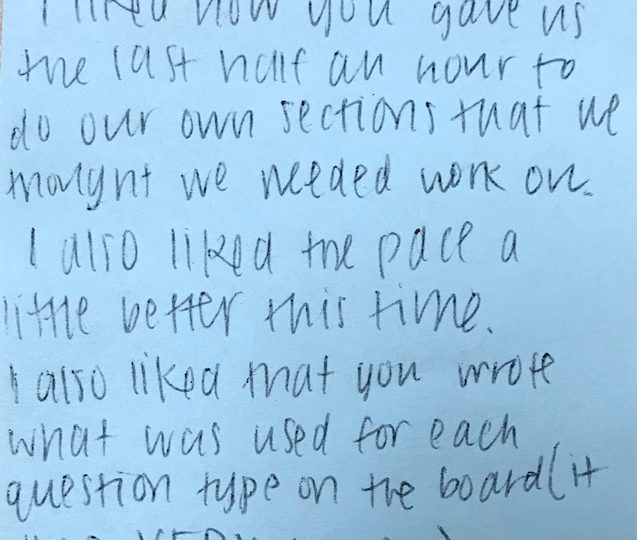 I liked how you gave us
the last half an hour to
do our own sections that we
thought we needed work on.
I also liked the pace a
little better this time.
I also liked that you wrote
what was used for each
question type on the board (it
VERY